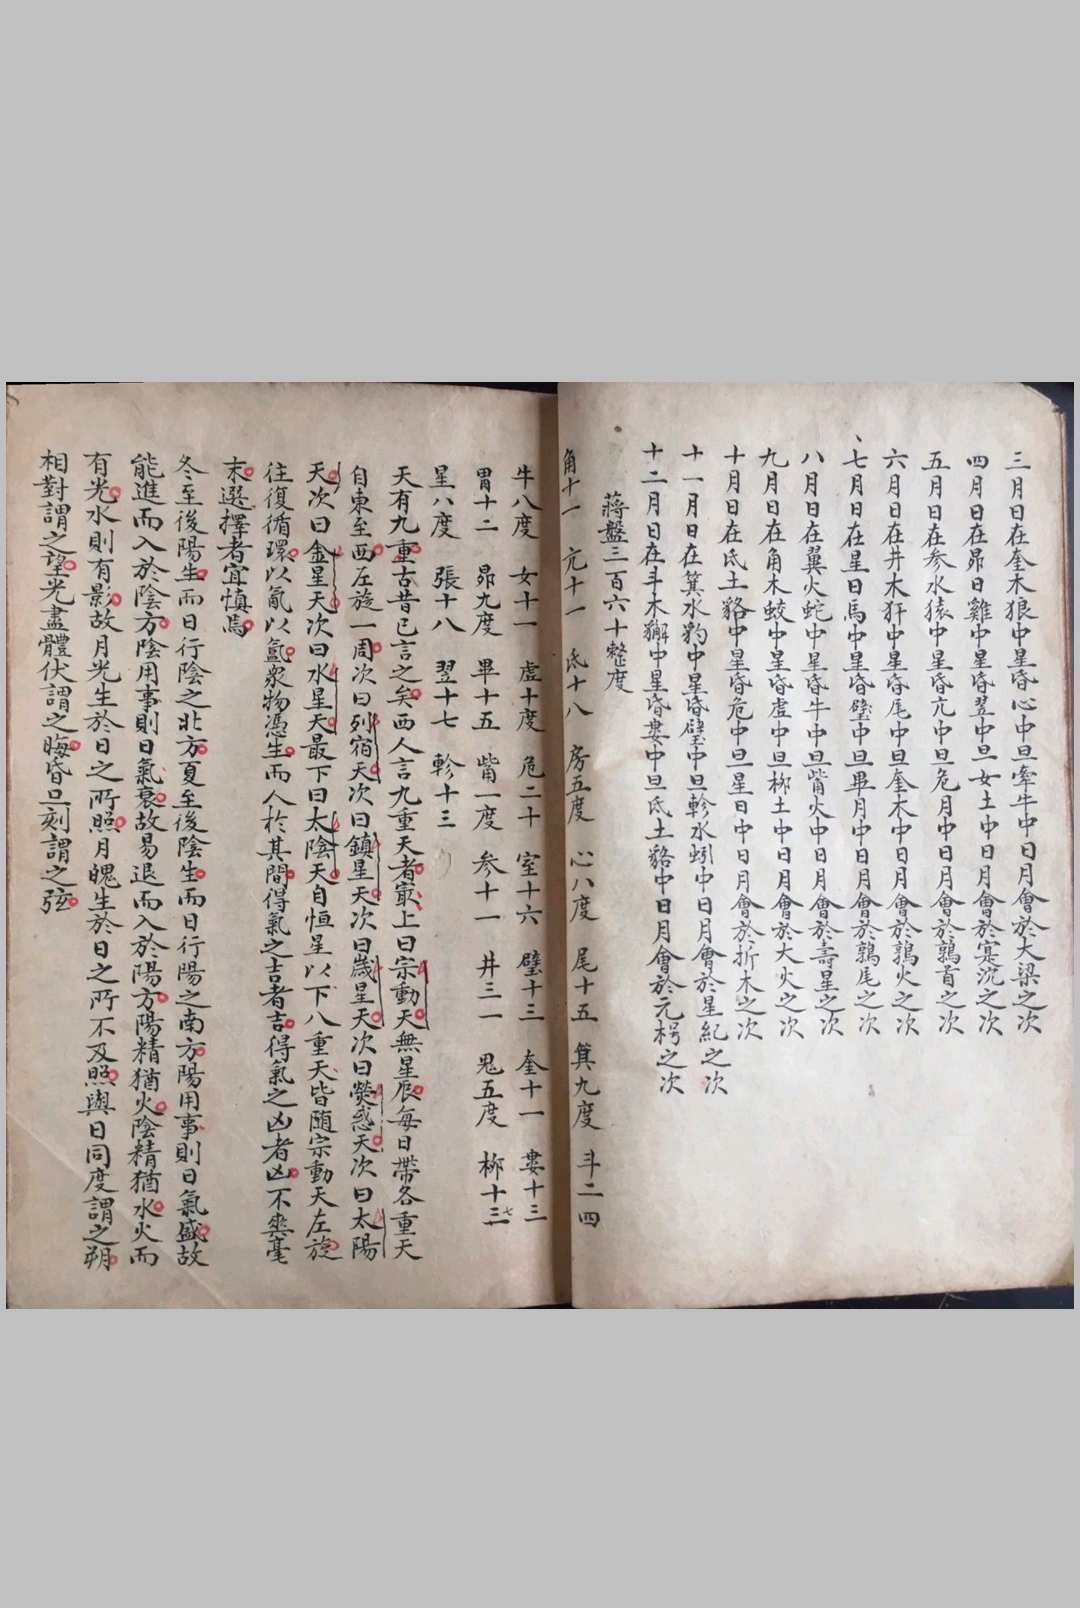 三月日在奎木狼中星昏心中旦牽牛中日月會於大梁之次
四月日在昴日雞中星昏翌中旦女土中日月會於寔沉之次
五月日在参水猿中星昏亢中旦危月中日月會於鶉首之次
六月日在井木犴中星昏尾中旦奎木中日月會於鶉火之次
七月日在星日馬中星昏璧中旦畢月中日月會於鶉尾之次
八月日在翼火蛇中星昏牛中旦觜火中日月會於壽星之次
九月日在角木蛟中星昏虛中旦柳土中日月會於大火之次
十月日在氐土貉中星昏危中旦星日中日月會於折木之次
十一月日在箕水豹中星昏璧中旦軫水蚓中日月會於星紀之次
十二月日在斗木獬中星昏婁中旦氐土貉中日月會於元枵之次
蔣盤三百六十整度
角十一 亢十一 氐十八 房五度 心八度 尾十五 箕九度 斗二四
牛八度 女十一 虛十度 危二十 室十六 璧十三 奎十一 婁十三
胃十二 昴九度 畢十五 觜一度 参十一 井三一 鬼五度 柳十三七
星八度 張十八 翌十七 軫十三
天有九重古昔已言之矣西人言九重天者最上曰宗動天無星辰每日帶各重天
自東至西左旋一周次曰列宿天次曰鎮星天次曰歲星天次曰熒惑天次曰太陽
天次曰金星天次曰水星天最下曰太陰天自恒星以下八重天皆随宗動天左旋
往復循環以氣以氳眾物憑生而人於其間得氣之吉者吉得氣之凶者凶不爽毫
末選擇者宜慎焉
冬至後陽生而日行陰之北方夏至後陰生而日行陽之南方陽用事則日氣盛故
能進而入於陰方陰用事則日氣衰故易退而入於陽方陽精猶火陰精猶水火而
有光水則有影故月光生於日之所照月魄生於日之所不及照與日同度謂之朔
相對謂之望光盡體伏謂之晦昏旦刻謂之弦